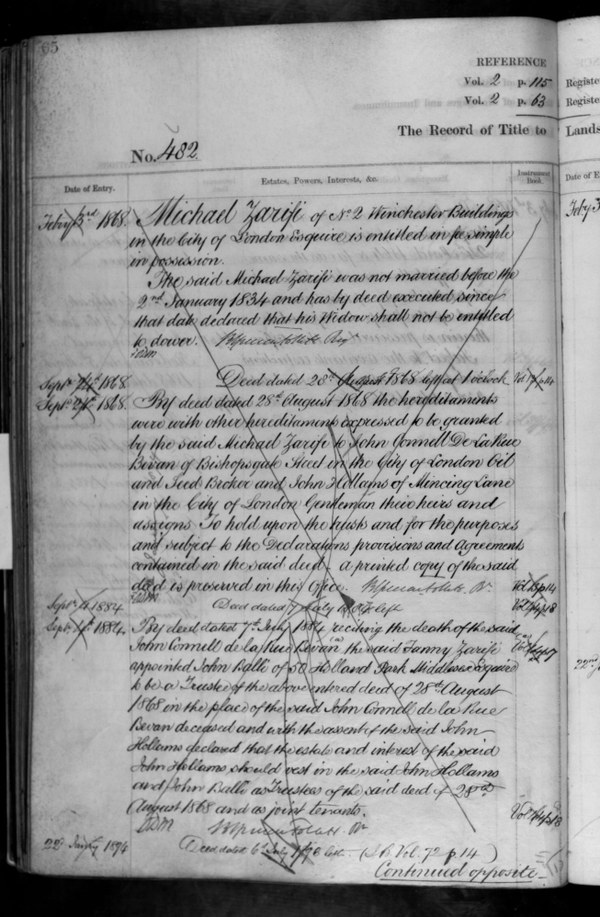 65
REFERENCE
Vol. 2 p. 115
Vol. 2 p. 63
Register
Register
The Record of Title to Lands
No. 482
Date of Entry. Estates, Powers, Interests, &c. Instrument Book.
Date of E
Feby 3rd 1868 Michael Zarifi of No 2 Winchester Buildings
Feby 3
in the City of London Esquire is entitled in fee simple
in possession.
The said Michael Zarifi was not married before the
2nd January 1834 and has by deed executed since
that date declared that his Widow shall not be entitled
to dower.
Septr 1868 Deed dated 28th August 1868 left at 1 oclock
Septr 1868 By deed dated 28th August 1868 the hereditaments
were with other hereditaments expressed to be granted
by the said Michael Zarifi to John Connell De La Rue
Bevan of Bishopsgate Street in the City of London Oil
and Seed Broker and John Hollams of Mincing Lane
in the City of London Gentleman their heirs and
assigns To hold upon the trusts and for the purposes
and subject to the Declarations provisions and Agreements
contained in the said deed a printed copy of the said
deed is preserved in this Office.
Septr 1884 Deed dated 7 July left
Septr 1884 By deed dated 7th July 1884 reciting the death of the said
John Connell de la Rue Bevan the said Fanny Zarifi
appointed John Ralli of 50 Holland Park Middlesex Esquire
22nd
to be a Trustee of the above entered deed of 28th August
1868 in the place of the said John Connell de la Rue
Bevan deceased and with the assent of the said John
Hollams declared that the estate and interest of the said
John Hollams should vest in the said John Hollams
and John Ralli as Trustees of the said deed of 28th
August 1868 and as joint tenants.
22 1894 Deed dated 6th July left (I B Vol. 72 p 14)
Continued opposite